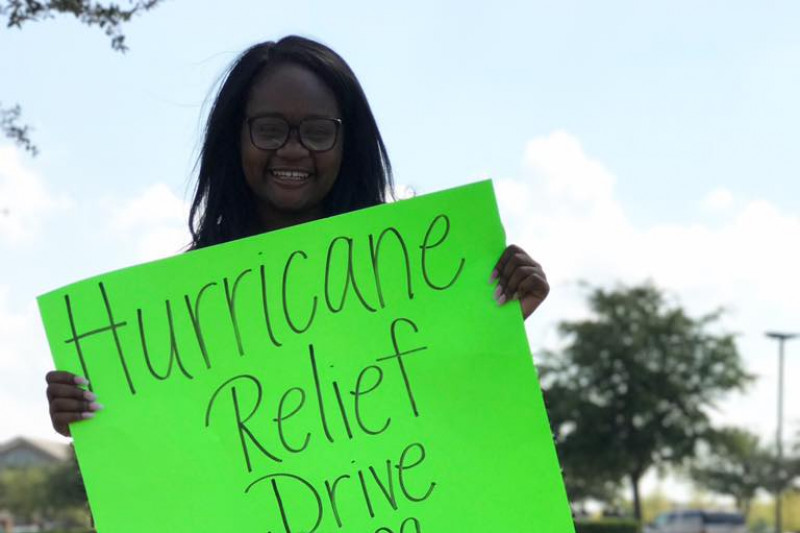 Hurricane
Relief
Drive